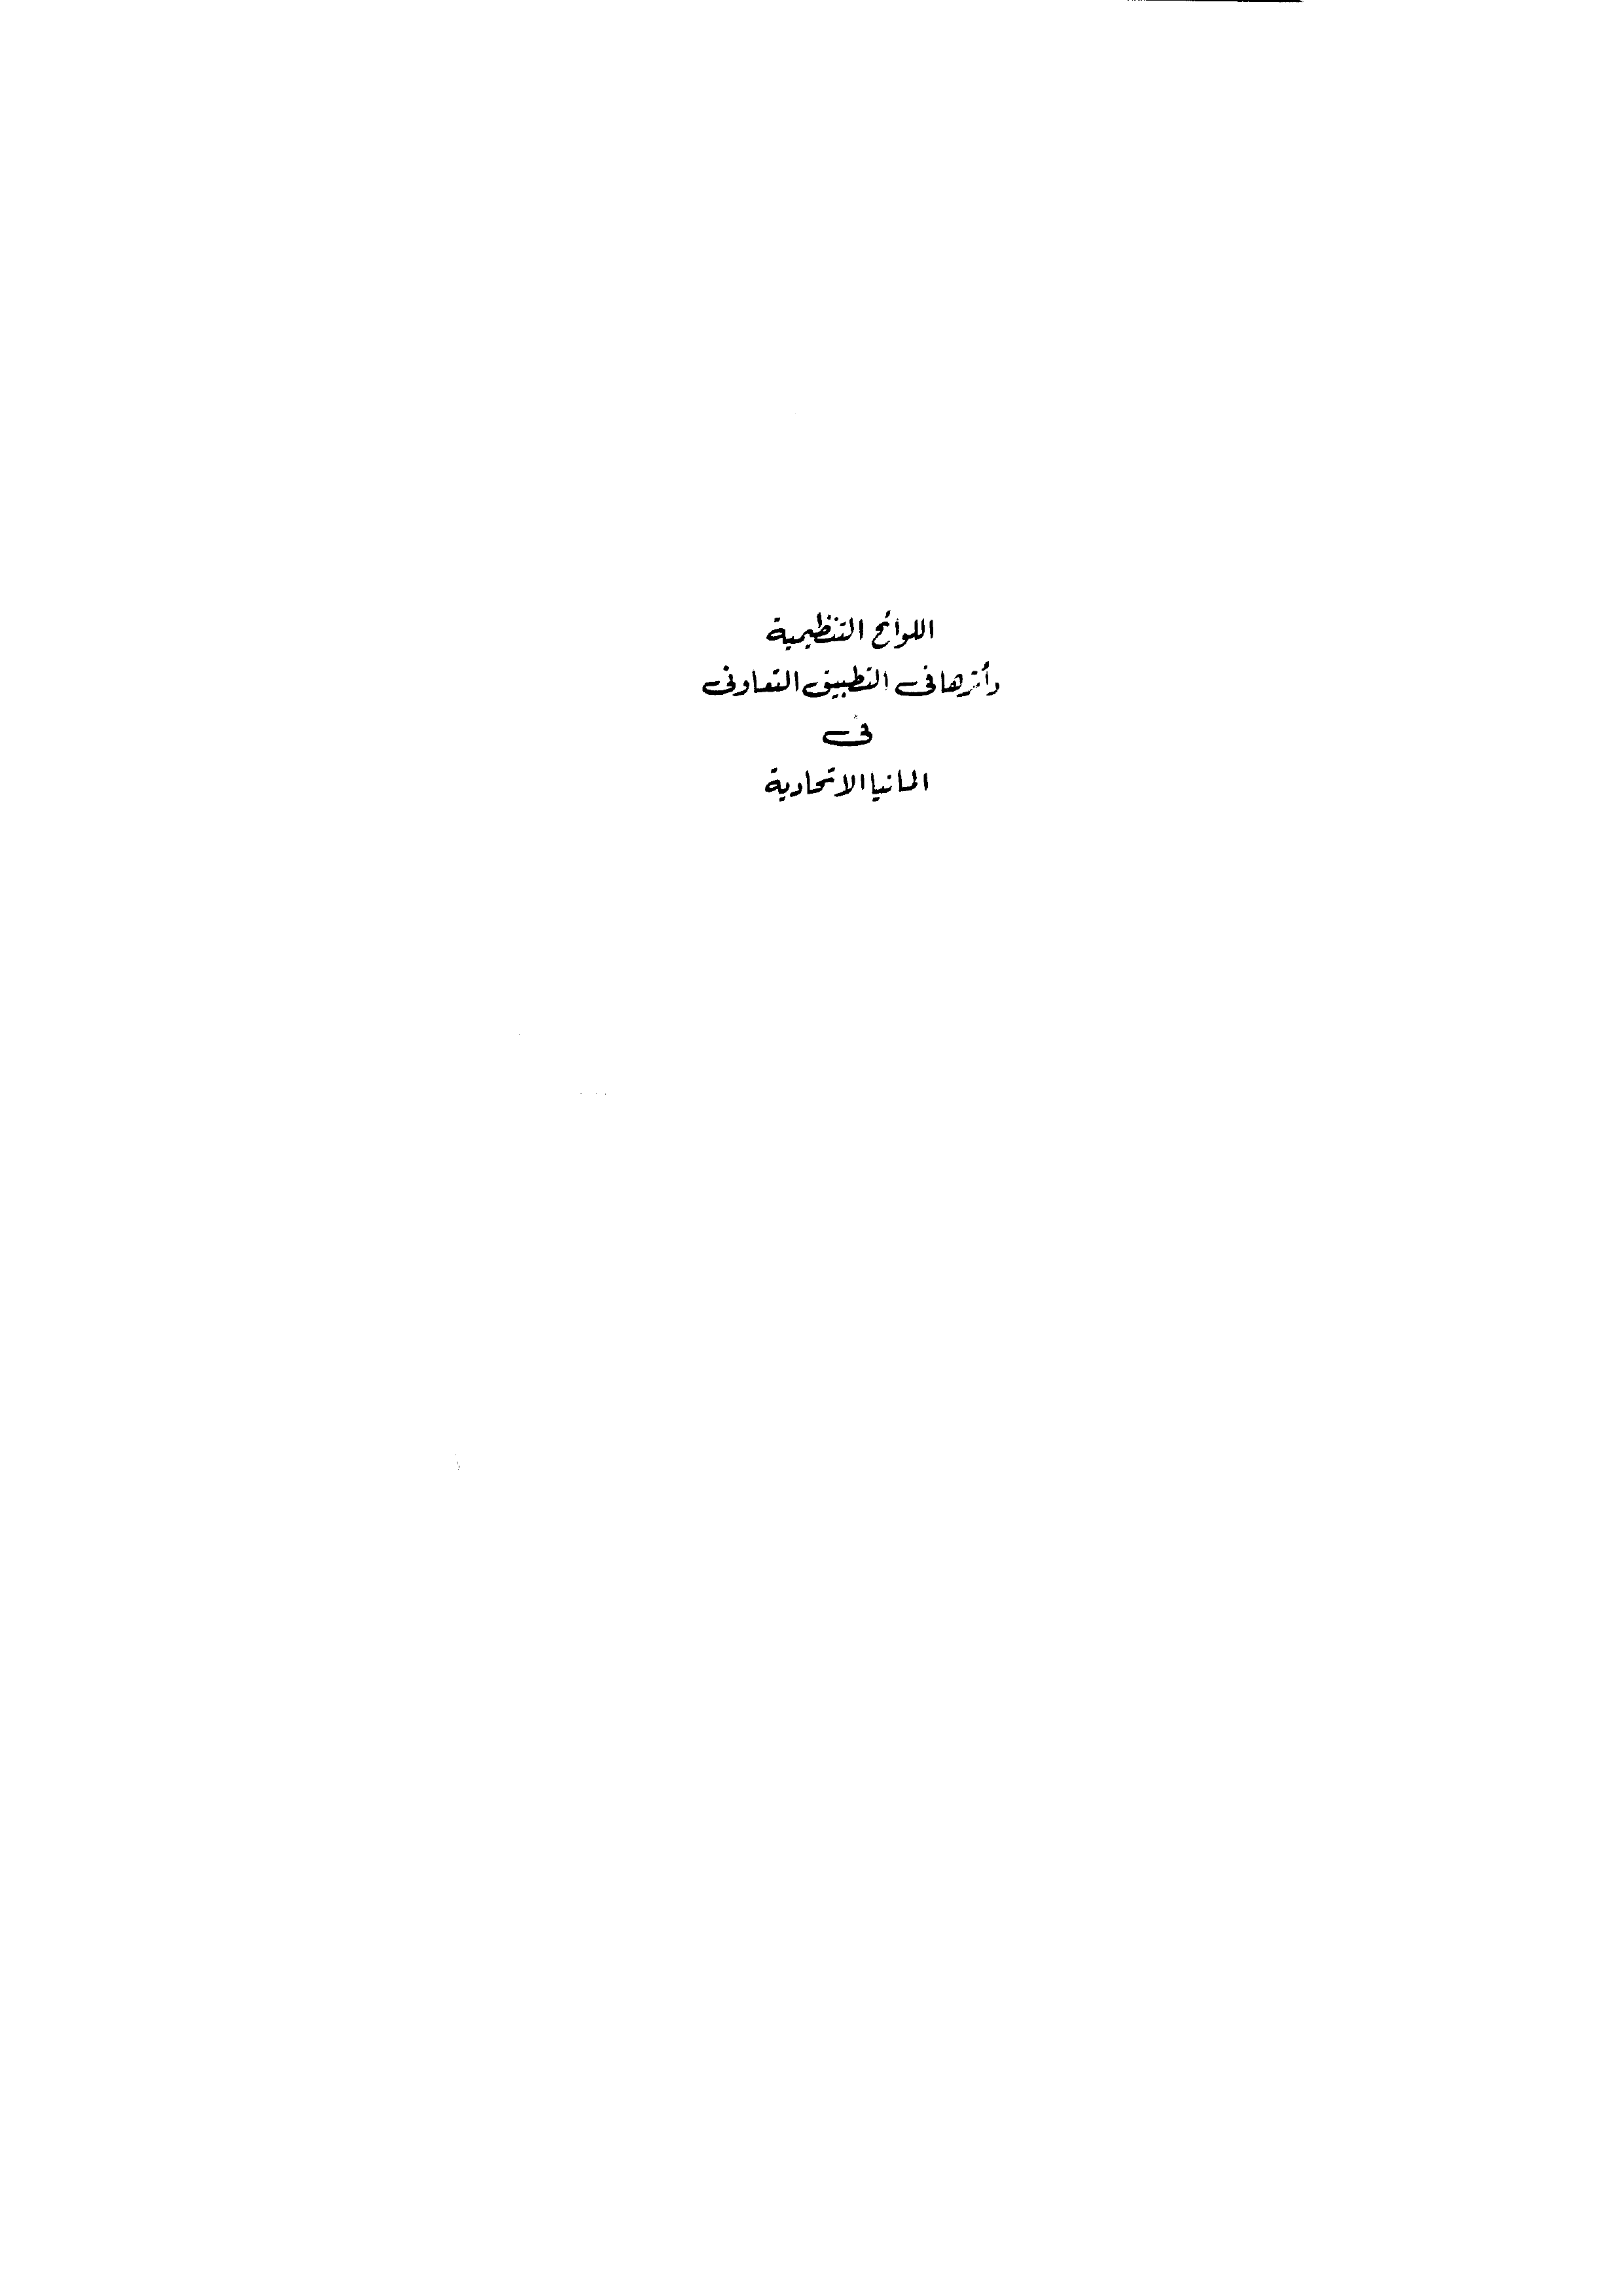 اللوائح التنظيمية
وأثرها فى التطبيق التعاونى
فى
المانيا الاتحادية